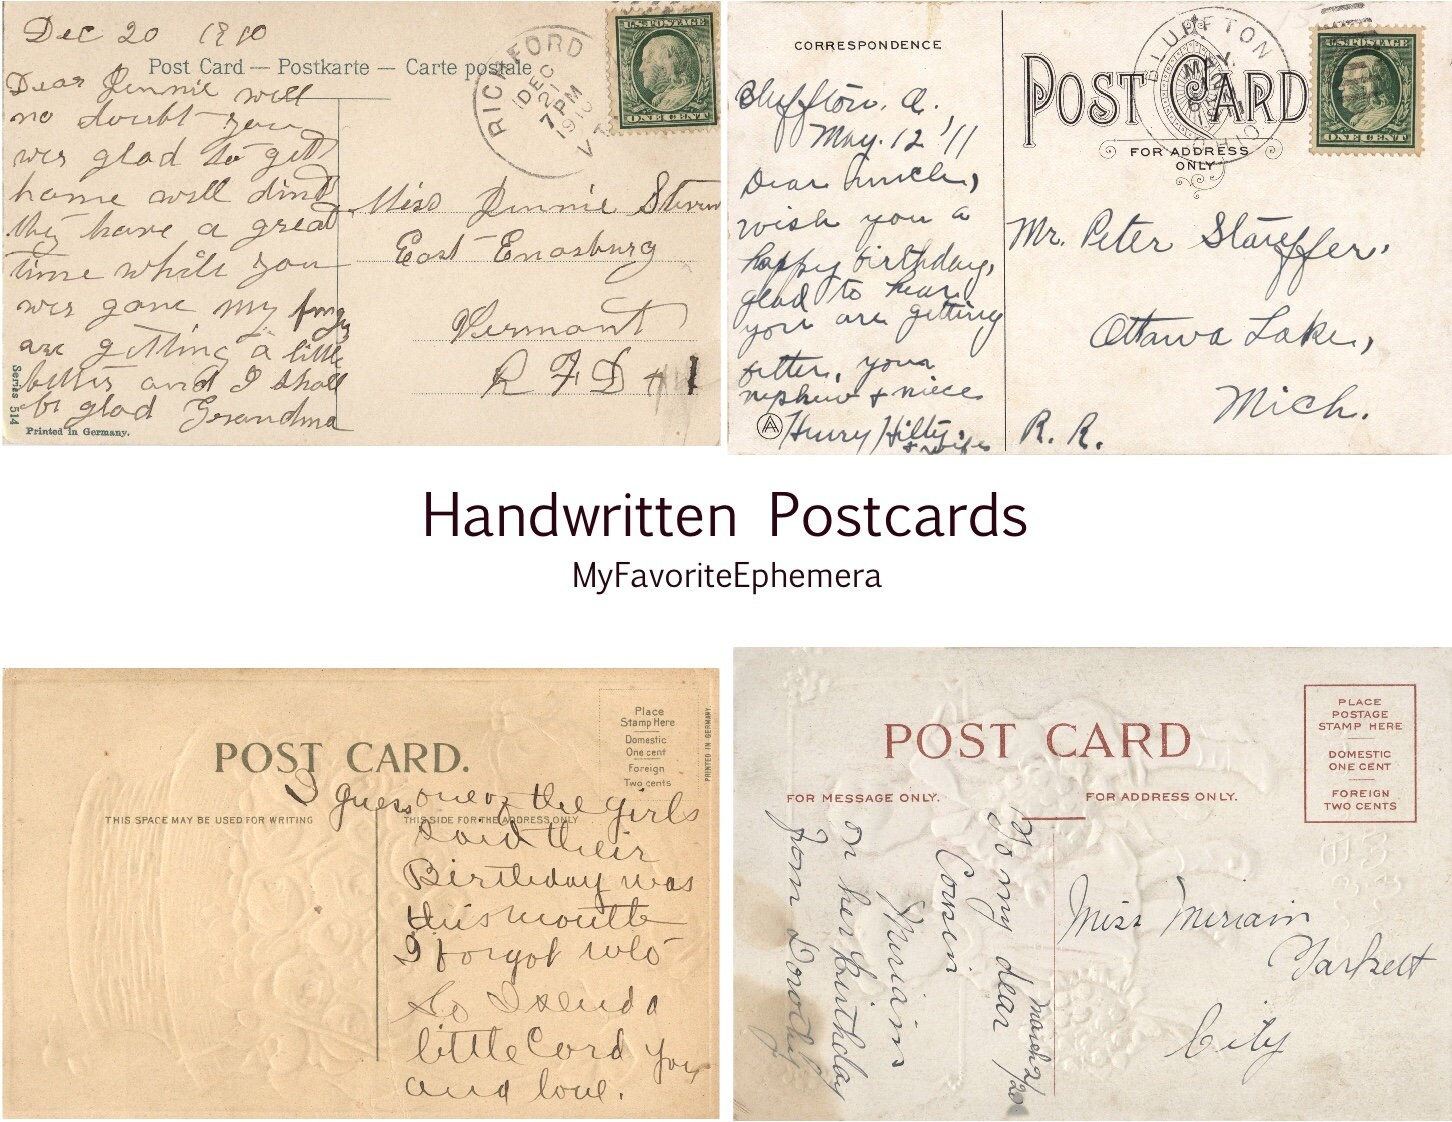 Dec 20 1910
Post Card — Postkarte — Carte postale
RICHFORD
DEC
21
7 PM
1910
VT
U.S. POSTAGE
ONE CENT
Dear Jennie well
no doubt you
wer glad to get
home well dind
they have a great
time while you
wer gone my
are getting a little
better and I shall
be glad Grandma
Series 514
Printed in Germany.
Miss Jennie
East Enosburg
Vermont
R F D 1
CORRESPONDENCE
POST CARD
FOR ADDRESS
ONLY
BLUFFTON
MAY
OHIO
U.S. POSTAGE
ONE CENT
Bluffton, O.
May. 12 '11
Dear Uncle,
wish you a
happy birthday,
glad to hear
you are getting
better, your
nephew + niece
Henry Hilty,
+ wife
Mr. Peter Stauffer,
Ottawa Lake,
Mich.
R. R.
Handwritten Postcards
MyFavoriteEphemera
POST CARD.
Place
Stamp Here
Domestic
One cent
Foreign
Two cents
PRINTED IN GERMANY
THIS SPACE MAY BE USED FOR WRITING
THIS SIDE FOR THE ADDRESS ONLY
I guess one of the girls
said their
Birthday was
this mounth
I forgot who
So I send a
little Card you
and love.
POST CARD
PLACE
POSTAGE
STAMP HERE
DOMESTIC
ONE CENT
FOREIGN
TWO CENTS
FOR MESSAGE ONLY.
FOR ADDRESS ONLY.
March 2/20
To my dear
Cousin
Miriam
on her birthday
from Dorothy
Miss Miriam
Tarkett
City